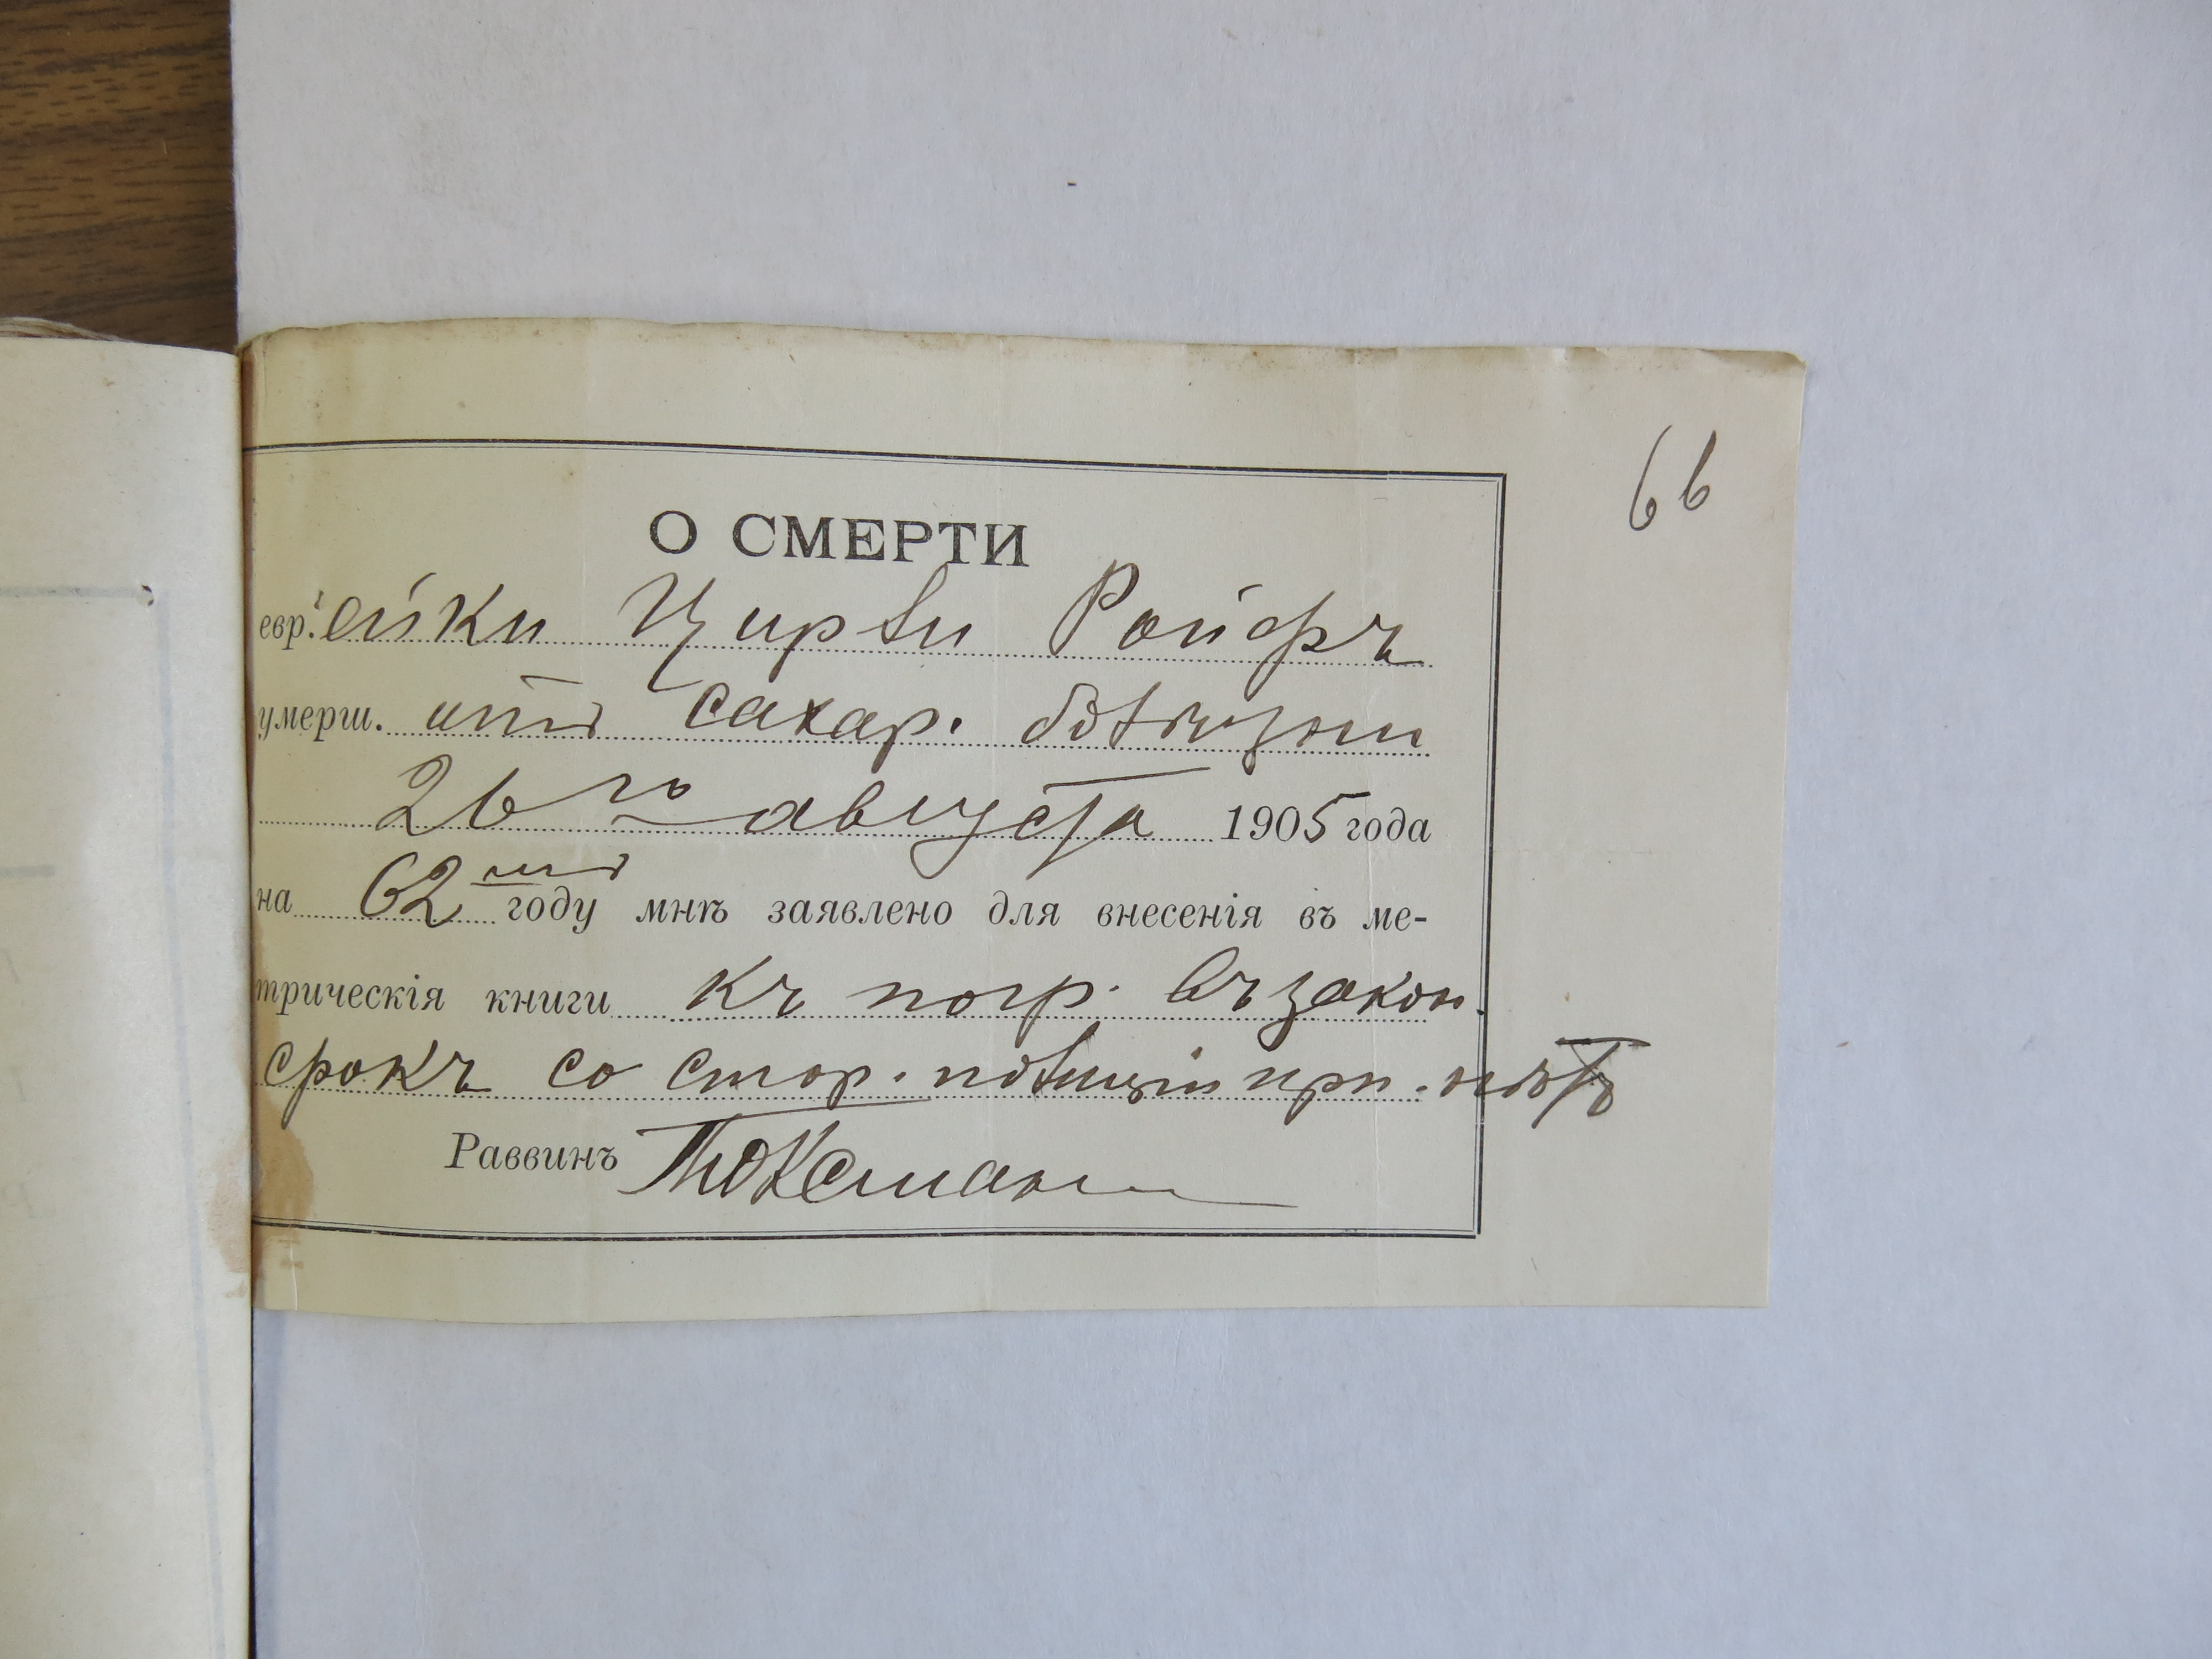 66
О СМЕРТИ
евр. ейки Цирли Ройфъ
умерш. отъ сахар. болѣзни
26го августа 1905 года
на 62мъ году мнѣ заявлено для внесенія въ ме-
трическія книги къ погр. въ закон.
срокъ со стор. полиціи преп. нѣтъ
Раввинъ